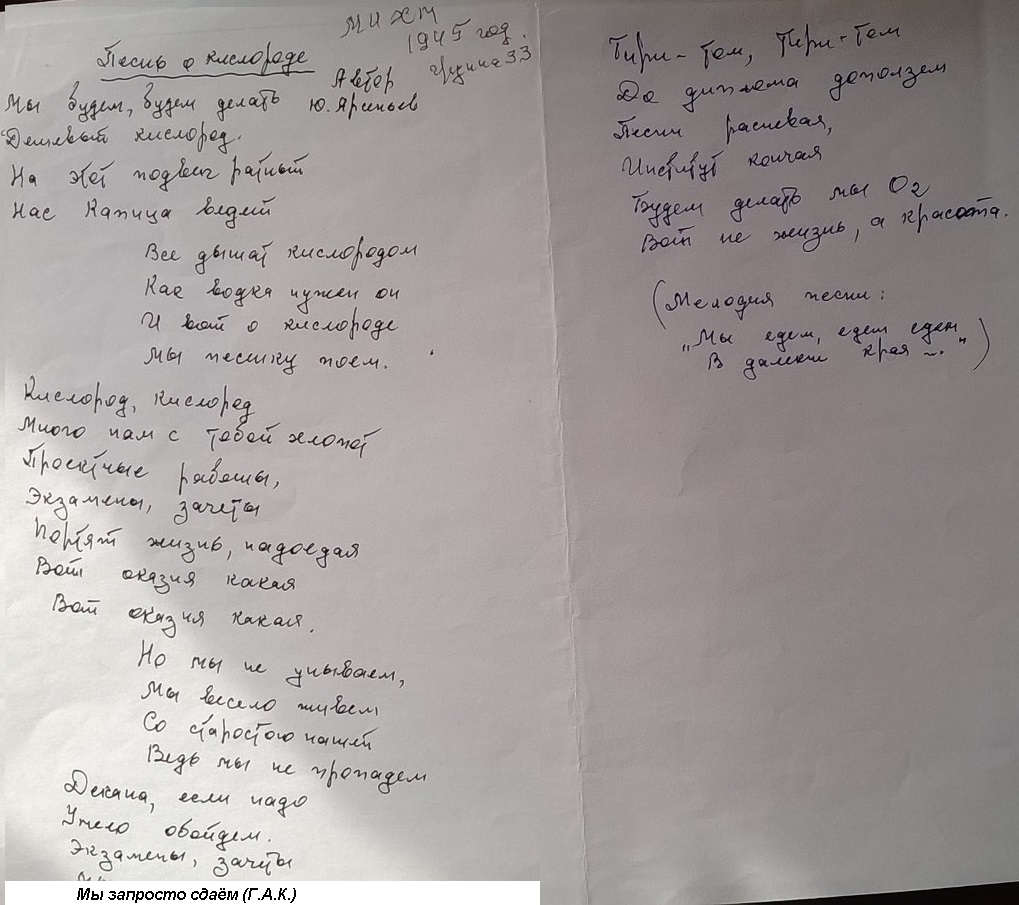 МИХМ
1945 год.
группа 33
Песнь о кислороде
Автор
Ю. Арсеньев
Мы будем, будем делать
Дешевый кислород.
На этот подвиг ратный
Нас Капица ведет
Все дышат кислородом
Как водка нужен он
И вот о кислороде
Мы песенку поем.
Кислород, кислород
Много нам с тобой хлопот
Проектные работы,
Экзамены, зачеты
Портят жизнь, надоедая
Вот оказия какая
Вот оказия какая.
Но мы не унываем,
Мы весело живем
Со старостою нашей
Ведь мы не пропадем
Декана, если надо
Умело обойдем.
Экзамены, зачеты
Мы запросто сдаём (Г.А.К.)
Тири-том, Тири-том
До диплома доползем
Песни распевая,
Институт кончая
Будем делать мы O2
Вот не жизнь, а красота.
(Мелодия песни:
"Мы едем, едем едем
В далекие края ...")